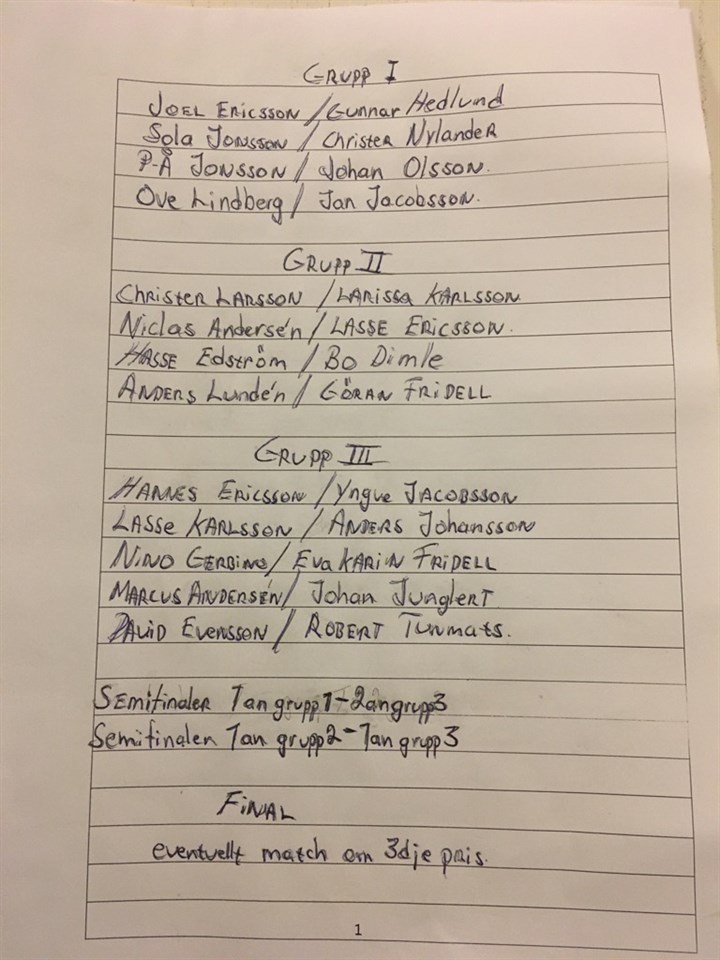 Grupp I
Joel Ericsson / Gunnar Hedlund
Sola Jonsson / Christer Nylander
P-Å Jonsson / Johan Olsson.
Ove Lindberg / Jan Jacobsson.
Grupp II
Christer Larsson / Larissa Karlsson
Niclas Andersén / Lasse Ericsson.
Hasse Edström / Bo Dimle
Anders Lundén / Göran Fridell
Grupp III
Hannes Ericsson / Yngve Jacobsson
Lasse Karlsson / Anders Johansson
Nino Gerbino / Eva Karin Fridell
Marcus Andersén / Johan Junglert
David Evensson / Robert Tunmats.
Semifinaler 1an grupp1-2an grupp3
Semifinaler 1an grupp2-1an grupp3
Final
eventuellt match om 3dje pris.
1